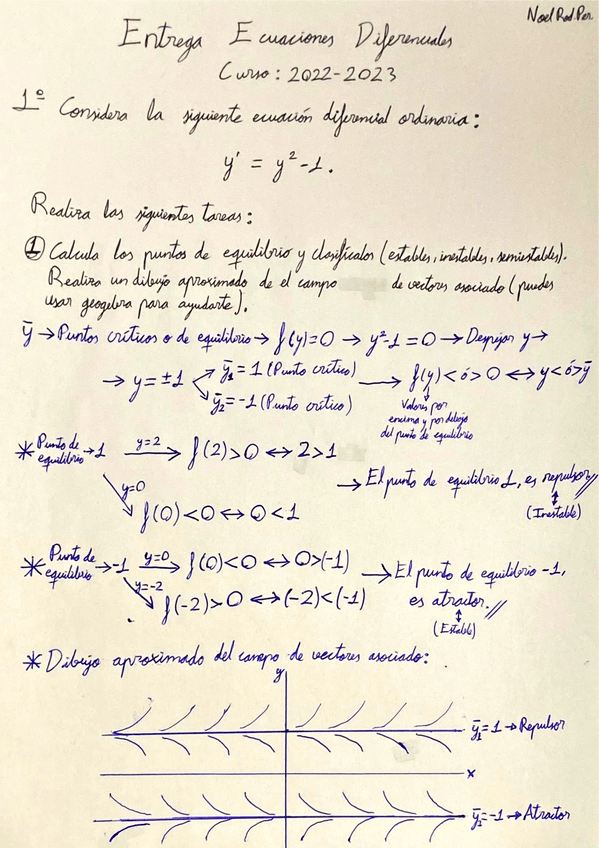 Noel Rod.Per.
Entrega Ecuaciones Diferenciales
Curso: 2022-2023
1º Considera la siguiente ecuación diferencial ordinaria:
y' = y²-1.
Realiza las siguientes tareas:
① Calcula los puntos de equilibrio y clasifícalos (estables, inestables, semiestables).
Realiza un dibujo aproximado de el campo de vectores asociado (puedes
usar geogebra para ayudarte).
ȳ → Puntos críticos o de equilibrio → f(y)=0 → y²-1=0 → Despejar y →
→ y = ±1
ȳ₁ = 1 (Punto crítico)
ȳ₂ = -1 (Punto crítico)
→ f(y) < ó > 0 ↔ y < ó > ȳ
Valores por
encima y por debajo
del punto de equilibrio
* Punto de
equilibrio → 1
y=2 → f(2)>0 ↔ 2>1
y=0
f(0)<0 ↔ 0<1
→ El punto de equilibrio 1, es repulsor //
(Inestable)
* Punto de
equilibrio → -1
y=0 → f(0)<0 ↔ 0>(-1)
y=-2
f(-2)>0 ↔ (-2)<(-1)
→ El punto de equilibrio -1,
es atractor. //
(Estable)
* Dibujo aproximado del campo de vectores asociado:
y
ȳ₁=1 → Repulsor
x
ȳ₂=-1 → Atractor